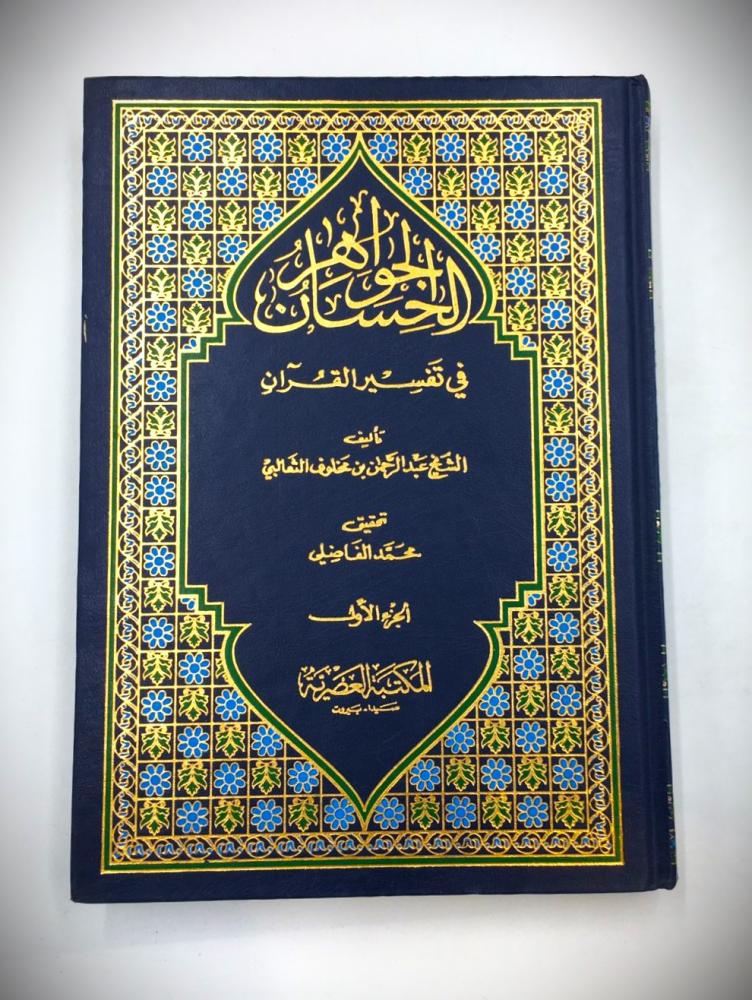 الجواهر الحسان
في تفسير القرآن
تأليف
الشيخ عبد الرحمن بن مخلوف الثعالبي
تحقيق
محمد الفاضلي
الجزء الأول
المكتبة العصرية
صيدا - بيروت